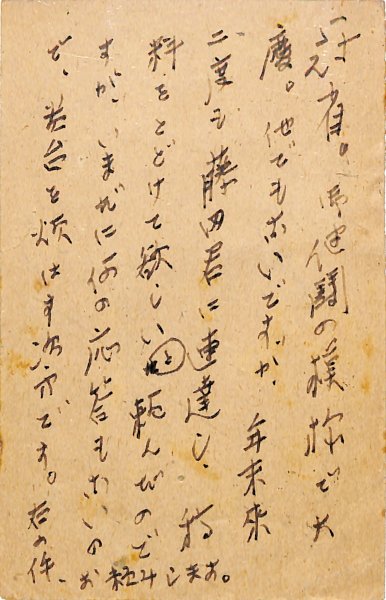 冠省。御健闘の模様で大
慶。他でもないですが、年末来
二度も藤田君に速達し、稿
料をとどけて欲しいと頼んだので
すが、いまだに何の応答もないの
で、老台を煩はす次第です。右の件、
お頼みします。